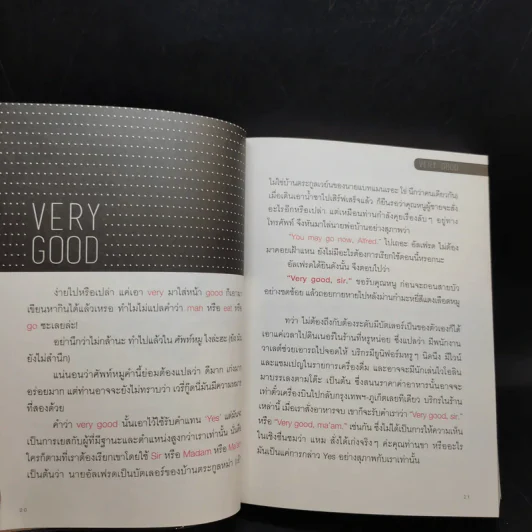 VERY
GOOD
ง่ายไปหรือเปล่า แค่เอา very มาใส่หน้า good ก็เอามา
เขียนหากินได้แล้วเหรอ ทำไมไม่แปลคำว่า man หรือ eat หรือ
go ซะเลยล่ะ!
อย่านึกว่าไม่กล้านะ ทำไปแล้วใน ศัพท์หมู ไงล่ะฮะ (ยัง
ยังไม่สำนึก)
แน่นอนว่าศัพท์หมูคำนี้ย่อมต้องแปลว่า ดีมาก เก่งมาก
อร่อยมาก แต่ท่านอาจจะยังไม่ทราบว่า เวรี่กู๊ดนี้มันมีความหมาย
ที่สองด้วย
คำว่า very good นั้นเอาไว้ใช้รับคำแทน 'Yes' แต่มัน
เป็นการเยสกับผู้ที่มีฐานะและตำแหน่งสูงกว่าเราเท่านั้น
ใครก็ตามที่เราต้องเรียกเขาโดยใช้ Sir หรือ Madam หรือ
เป็นต้นว่า นายอัลเฟรดเป็นบัตเลอร์ของบ้านตระกูล
VERY GOOD
ไม่ใช่บ้านตระกูลเวย์นของนายแบทแมนเรอะ ไฮ่ นึกว่าคนเดียวกัน)
เมื่อเดินเอาน้ำชาไปเสิร์ฟเสร็จแล้ว ก็ยืนรอว่าคุณหนูผู้ชายจะสั่ง
อะไรอีกหรือเปล่า แต่เหมือนท่านกำลังคุยเรื่องลับๆ อยู่ทาง
โทรศัพท์ จึงหันมาไล่นายพ่อบ้านอย่างสุภาพว่า
"You may go now, Alfred." ไปเถอะ อัลเฟรด ไม่ต้อง
มาคอยเฝ้าแหน ยังไม่มีอะไรต้องการเรียกใช้ตอนนี้หรอกนะ
อัลเฟรดได้ยินดังนั้น จึงตอบไปว่า
"Very good, sir." ขอรับคุณหนู ก่อนจะถอนสายบัว
อย่างชดช้อย แล้วถอยกายหายไปหลังม่านกำมะหยี่สีแดงเลือดหมู
ทว่า ไม่ต้องถึงกับต้องระดับมีบัตเลอร์เป็นของตัวเองก็ได้
เอาแค่เวลาไปดินเนอร์ในร้านที่หรูหน่อย ซึ่งแปลว่า มีพนักงาน
วาเลต์ช่วยเอารถไปจอดให้ บริกรมียูนิฟอร์มหรูๆ นิดนึง มีไวน์
และแชมเปญในรายการเครื่องดื่ม และอาจจะมีนักเล่นไวโอลิน
มาบรรเลงตามโต๊ะ เป็นต้น ซึ่งสนนราคาค่าอาหารนั้นอาจจะ
เท่าตั๋วเครื่องบินไปกลับกรุงเทพฯ-ภูเก็ตเลยทีเดียว บริกรในร้าน
เหล่านี้ เมื่อเราสั่งอาหารจบ เขาก็จะรับคำเราว่า "Very good, sir."
หรือ "Very good, ma'am." เช่นกัน ซึ่งไม่ได้เป็นการให้ความเห็น
ในเชิงชื่นชมว่า แหม สั่งได้เก่งจริงๆ ค่ะคุณท่านขา หรืออะไร
มันเป็นแค่การกล่าว Yes อย่างสุภาพกับเราเท่านั้น